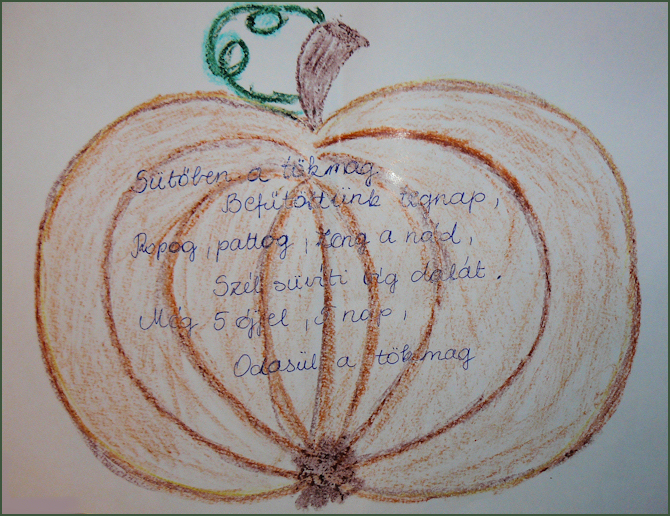 Sütőben a tökmag
Befűtöttünk tegnap,
Ropog, pattog, zeng a nád,
Szél süvíti víg dalát.
Még 5 éjjel, 5 nap,
Odasül a tökmag